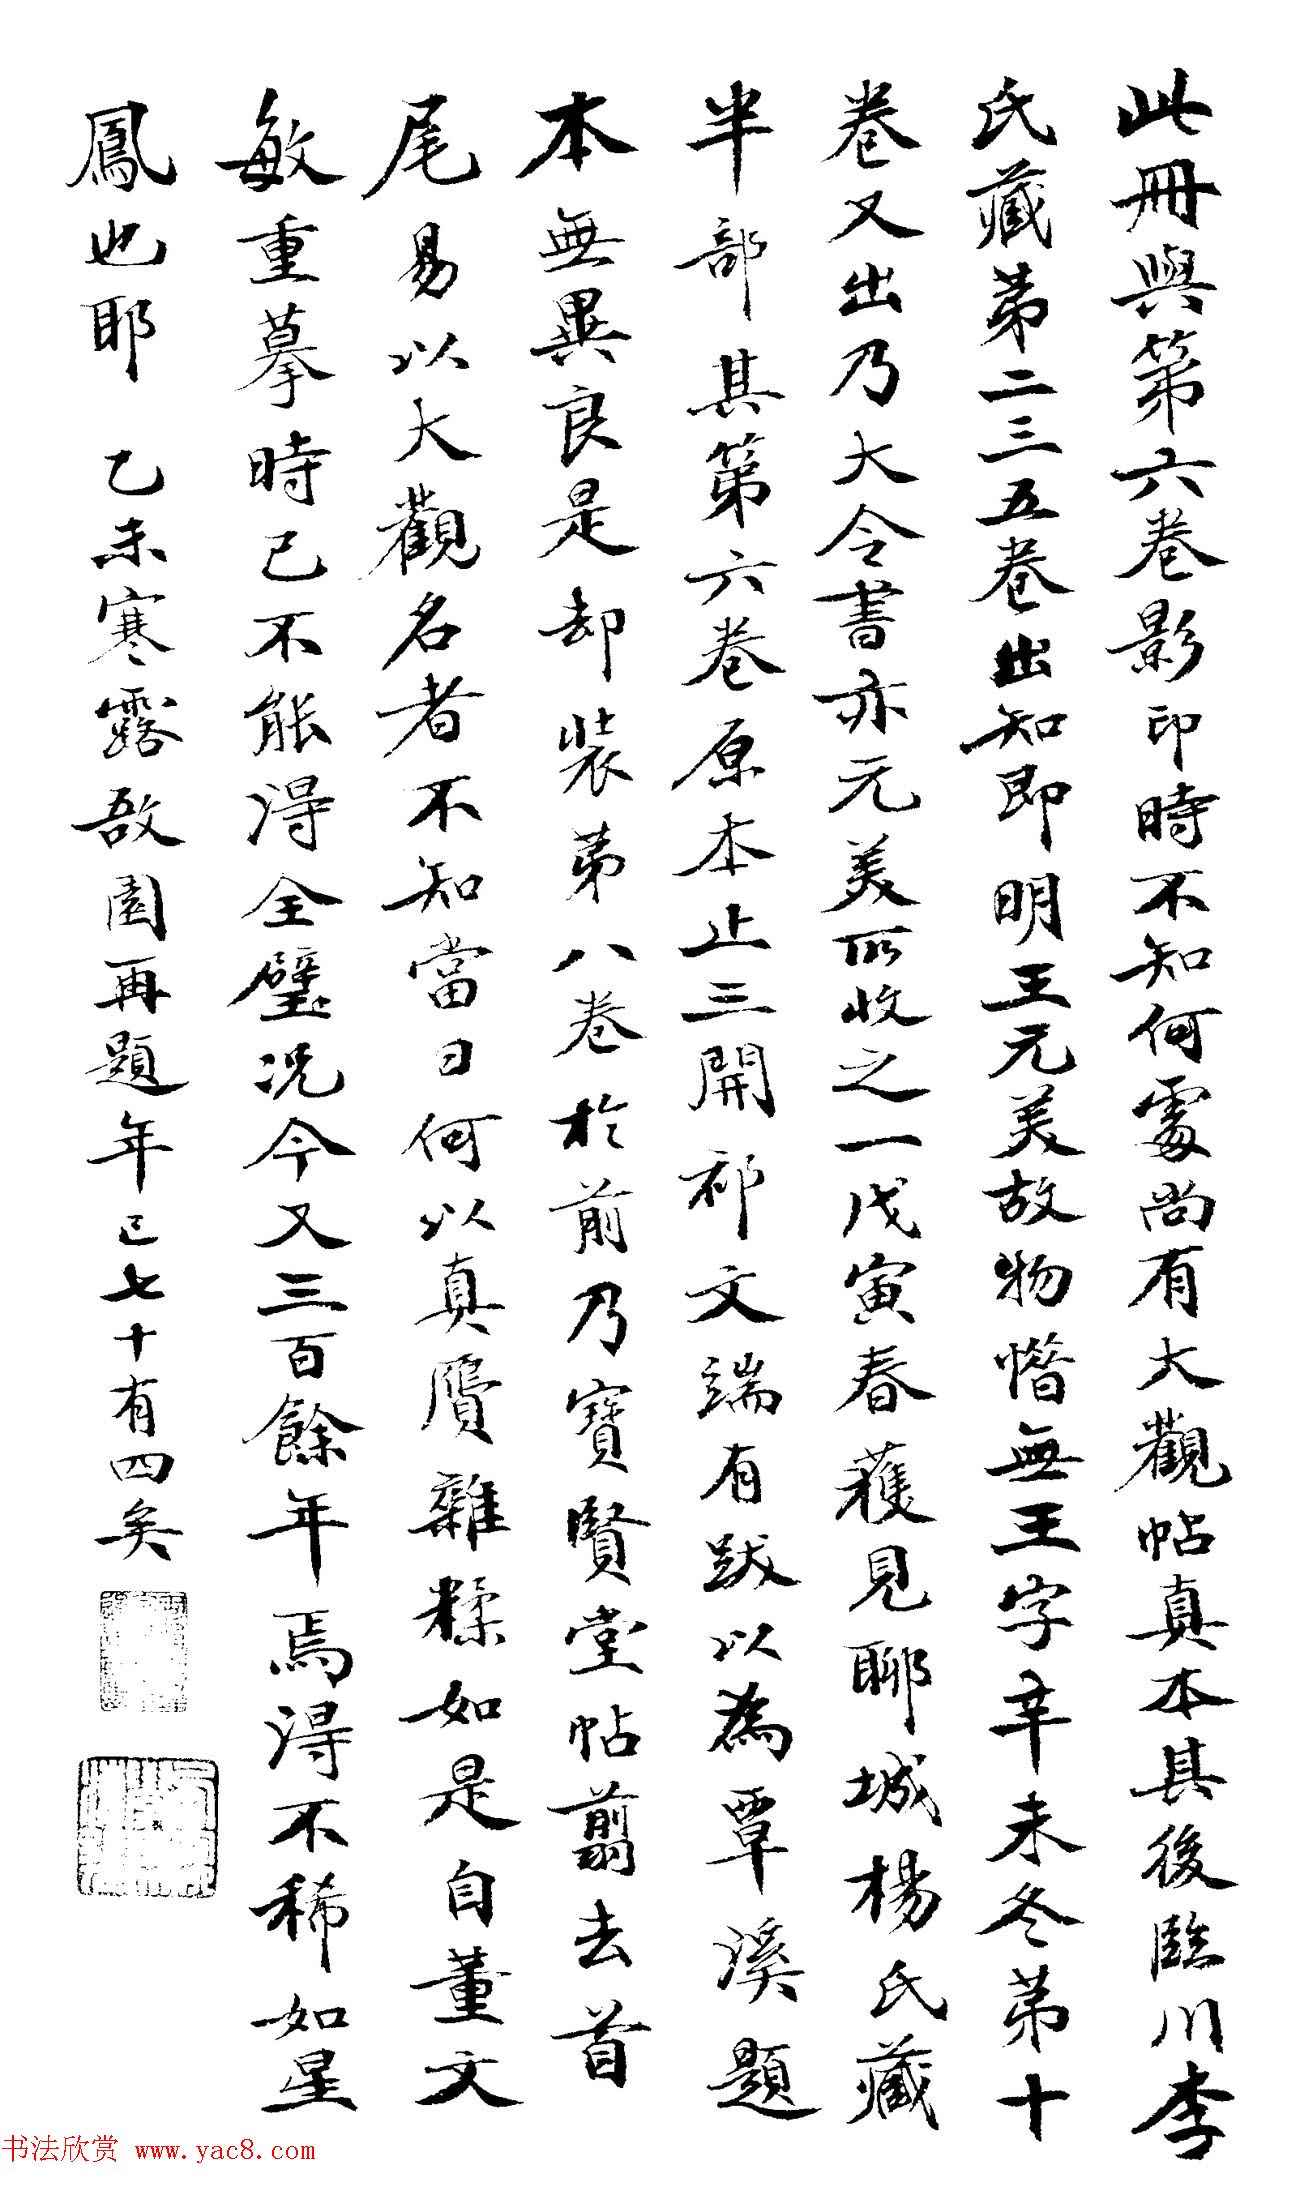 此冊與第六卷影印時不知何處尚有大觀帖真本其後臨川李
氏藏第二三五卷出知即明王元美故物惜無王字辛未冬第十
卷又出乃大令書亦元美所收之一戊寅春獲見聊城楊氏藏
半部其第六卷原本止三開祁文端有跋以為覃溪題
本無異良是却裝第八卷於前乃寶賢堂帖翦去首
尾易以大觀名者不知當日何以真贗雜糅如是自董文
敏重摹時已不能得全璧況今又三百餘年焉得不稀如星
鳳也耶 乙未寒露敔園再題年已七十有四矣
书法欣赏 www.yac8.com